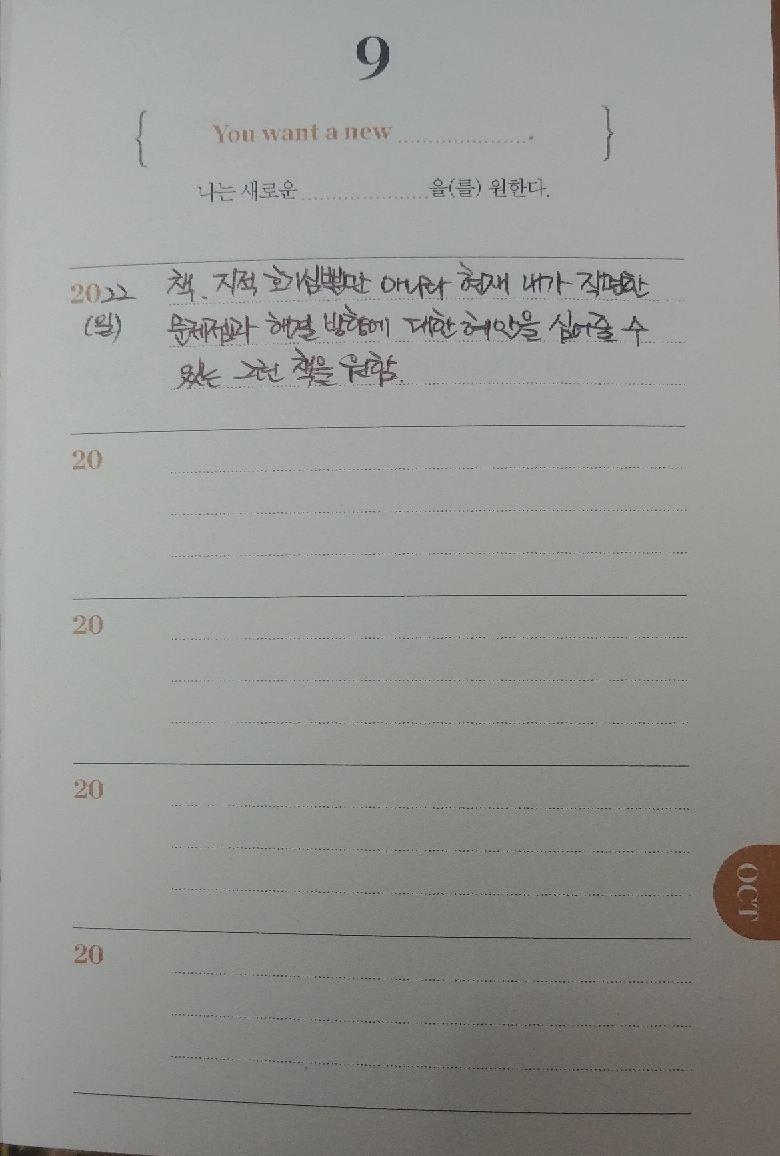 9
{ You want a new ..................... . }
나는 새로운 ..................... 을(를) 원한다.
2022 책. 지적 호기심뿐만 아니라 현재 내가 직면한
(일) 문제점과 해결 방향에 대한 혜안을 심어줄 수
있는 그런 책을 원함.
20
20
20
20
OCT